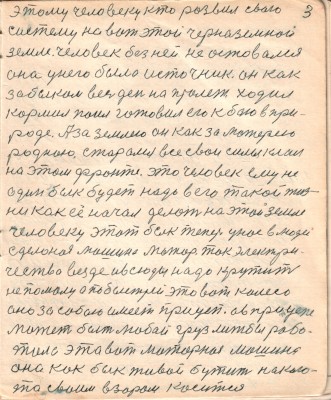 3
этому человеку кто розвил свою
систему на вот этой черназемной
земле. человек без ней не оставался
она у него была источник. он как
за быком весь ден на пролет ходил
кормил поил готовил его к баю в при-
роде. А за землею он как за матерею
родною, старался все свои силы клал
на этом фронте. это человек ему не
один бык будет надо в его такой жиз-
ни как её начал делат на этой земле
человеку этот бык теперь у нас в людей
сделоная машина матар. так электри-
чество везде и всюду надо крутит
не помалу а побыстрей это вот колесо
оно за собою имеет прицеп. а в прицепе
может быт любой груз литбы рабо-
тала эта вот маторная машина
она как бык живой бутит на кого-
то своим взором косится